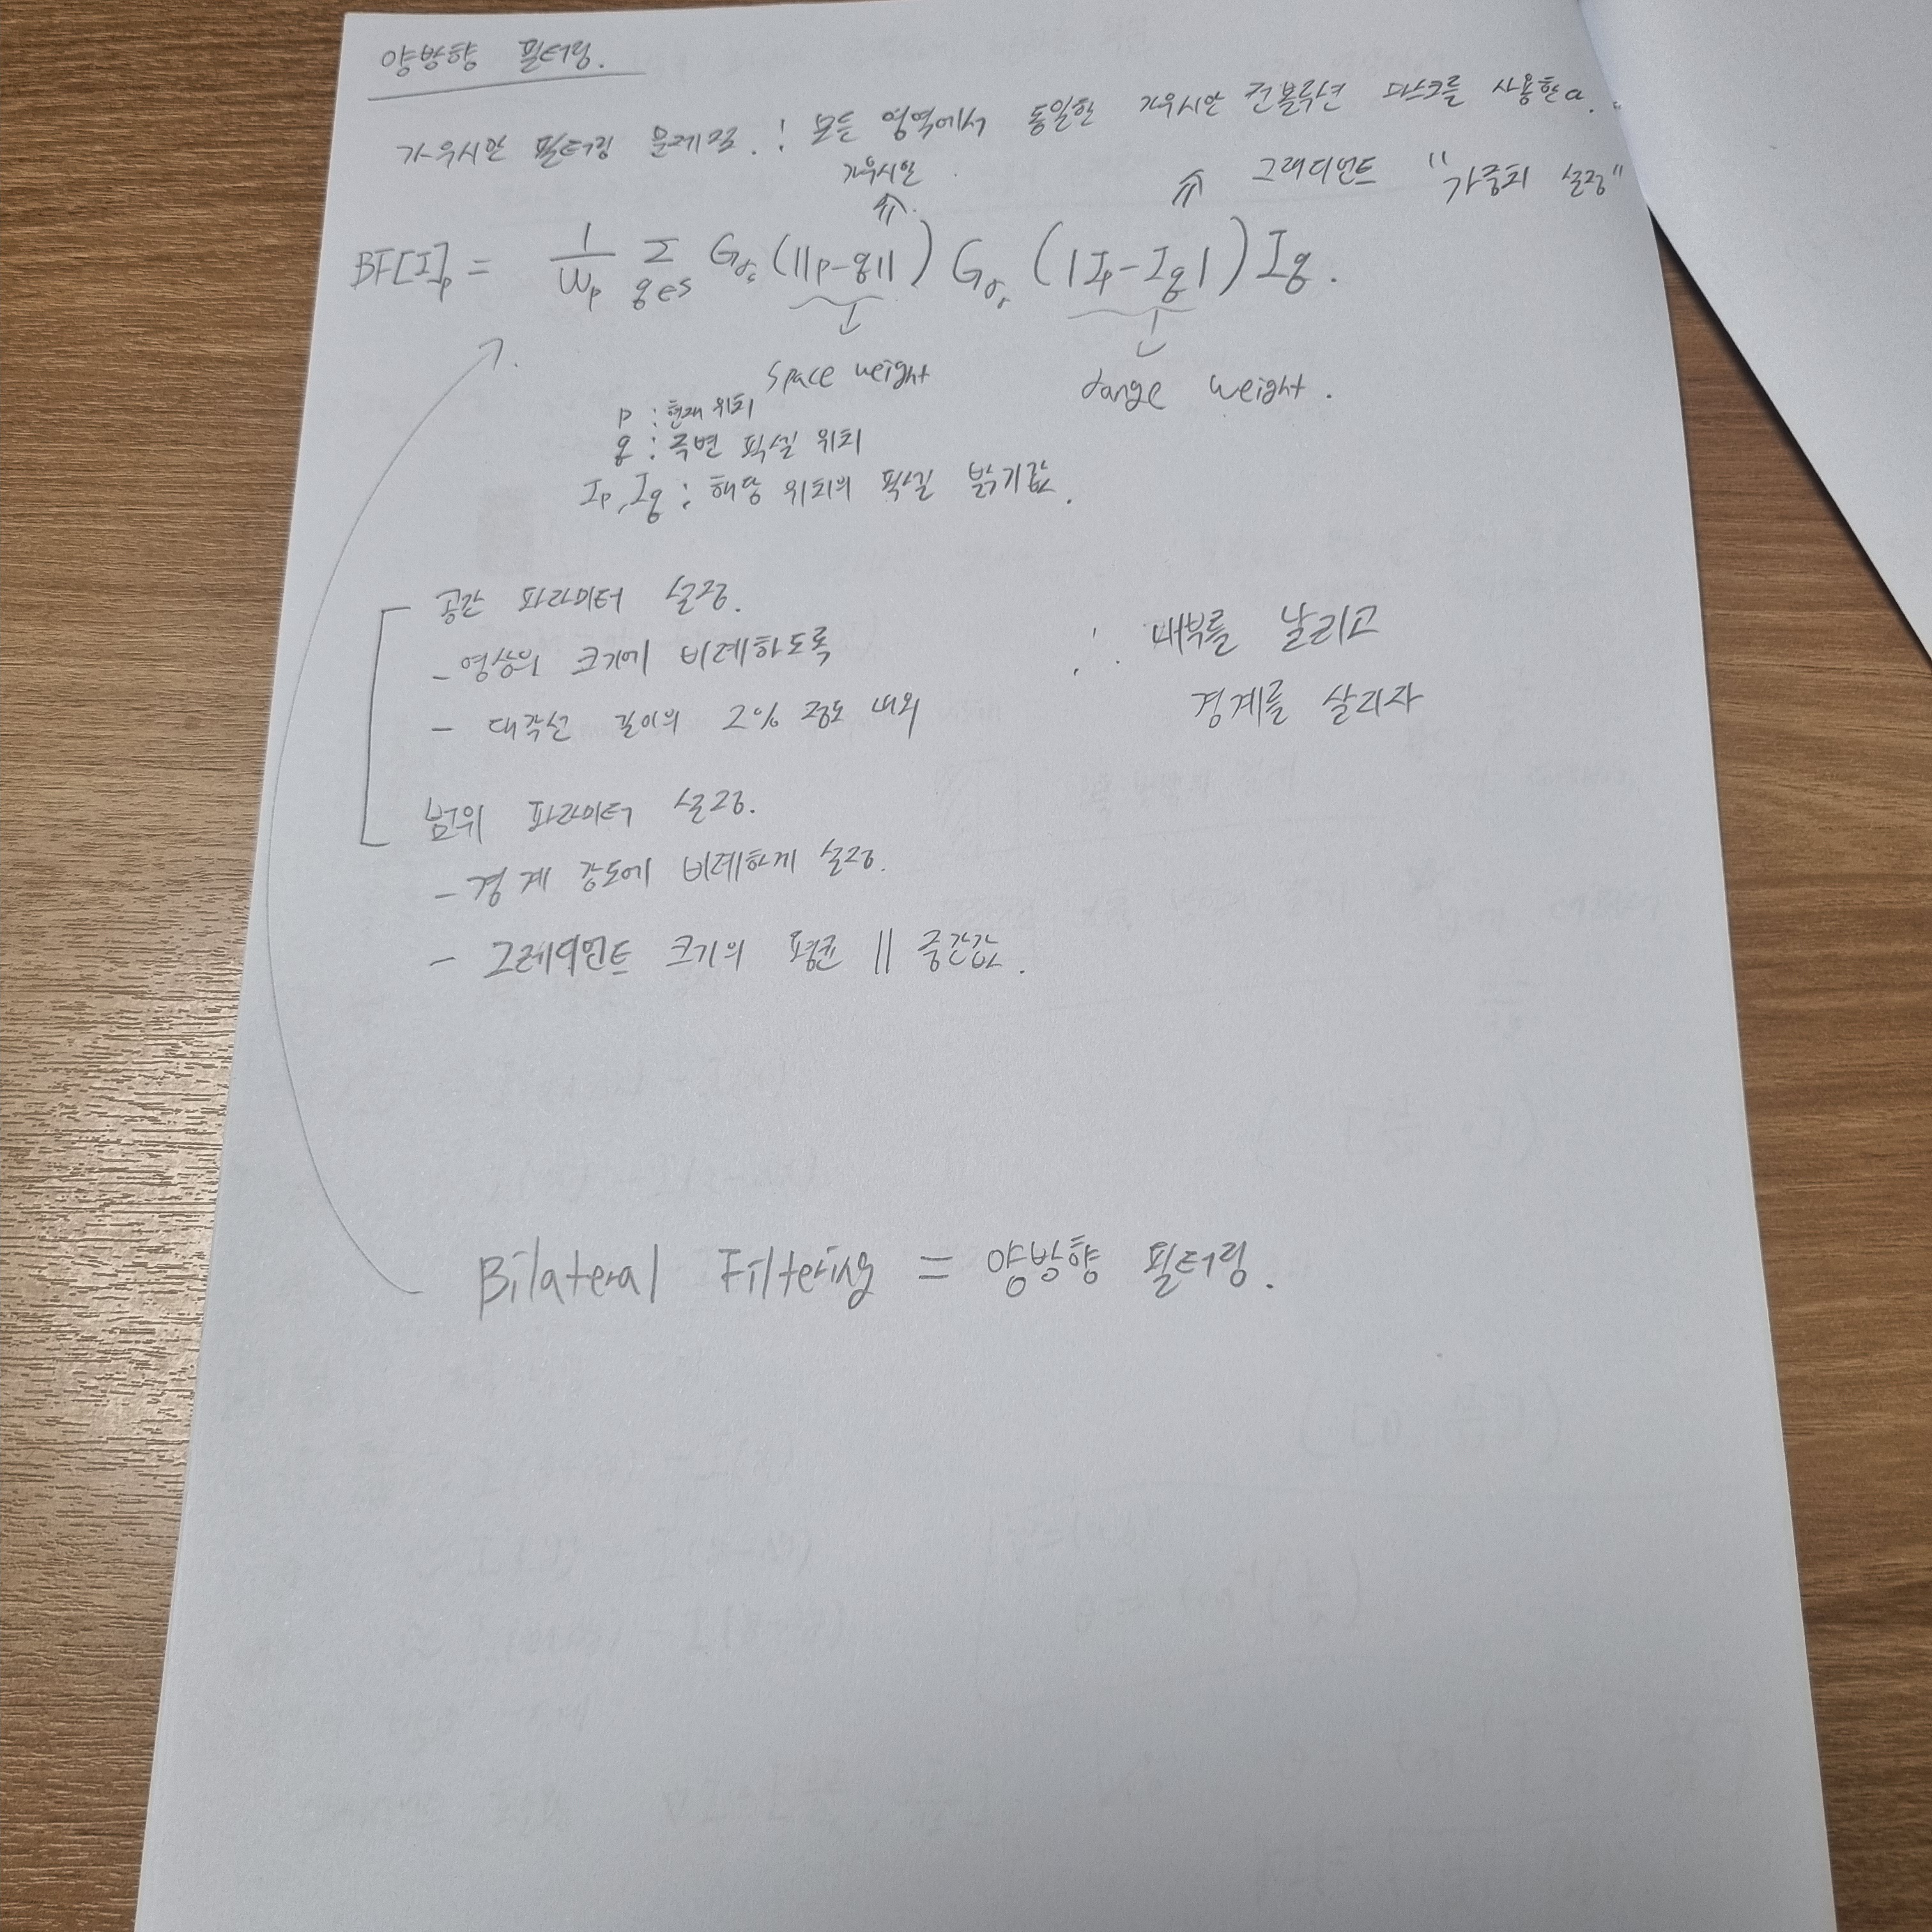 양방향 필터링.
가우시안 필터링 문제점. : 모든 영역에서 동일한 가우시안 컨볼루션 마스크를 사용한다.
가우시안
⇑ ⇑ 그래디언트 "가중치 설정"
BF[I]p = 1/Wp Σ q∈S Gσs (||p-q||) Gσr (|Ip-Iq|) Iq.
space weight range weight.
p : 현재 위치
q : 주변 픽셀 위치
Ip, Iq : 해당 위치의 픽셀 밝기값.
공간 파라미터 설정.
- 영상의 크기에 비례하도록
- 대각선 길이의 2% 정도 내외
∴ 내부를 날리고
경계를 살리자
범위 파라미터 설정.
- 경계 강도에 비례하게 설정.
- 그레디언트 크기의 평균 || 중간값.
Bilateral Filtering = 양방향 필터링.